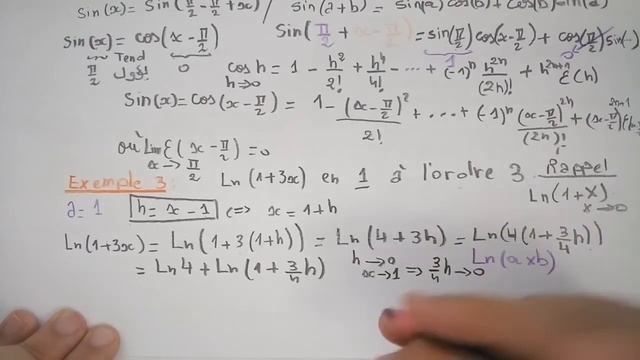 Sin(x) = Sin(π/2 - π/2 + x) / Sin(a+b) = Sin(a)cos(b) + cos(b)sin(a)
Sin(x) = cos(x - π/2) Sin(π/2 + x - π/2) = sin(π/2) cos(x - π/2) + cos(π/2) sin(-)
Tend 0 1 0
π/2 تؤول
cos h = 1 - h²/2! + h⁴/4! - ... + (-1)ⁿ h²ⁿ/(2n)! + h²ⁿ⁺¹ ε(h)
h→0
Sin(x) = cos(x - π/2) = 1 - (x - π/2)²/2! + ... + (-1)ⁿ (x - π/2)²ⁿ/(2n)! + (x - π/2)²ⁿ⁺¹ ε(
où Lim ε(x - π/2) = 0
x → π/2
Exemple 3 Ln(1+3x) en 1 à l'ordre 3 Rappel
Ln(1+X)
x→0
a = 1 h = x - 1 <=> x = 1+h
Ln(1+3x) = Ln(1+3(1+h)) = Ln(4+3h) = Ln(4(1+3/4 h))
= Ln4 + Ln(1+3/4 h) h→0 Ln(a×b)
x→1 => 3/4 h→0